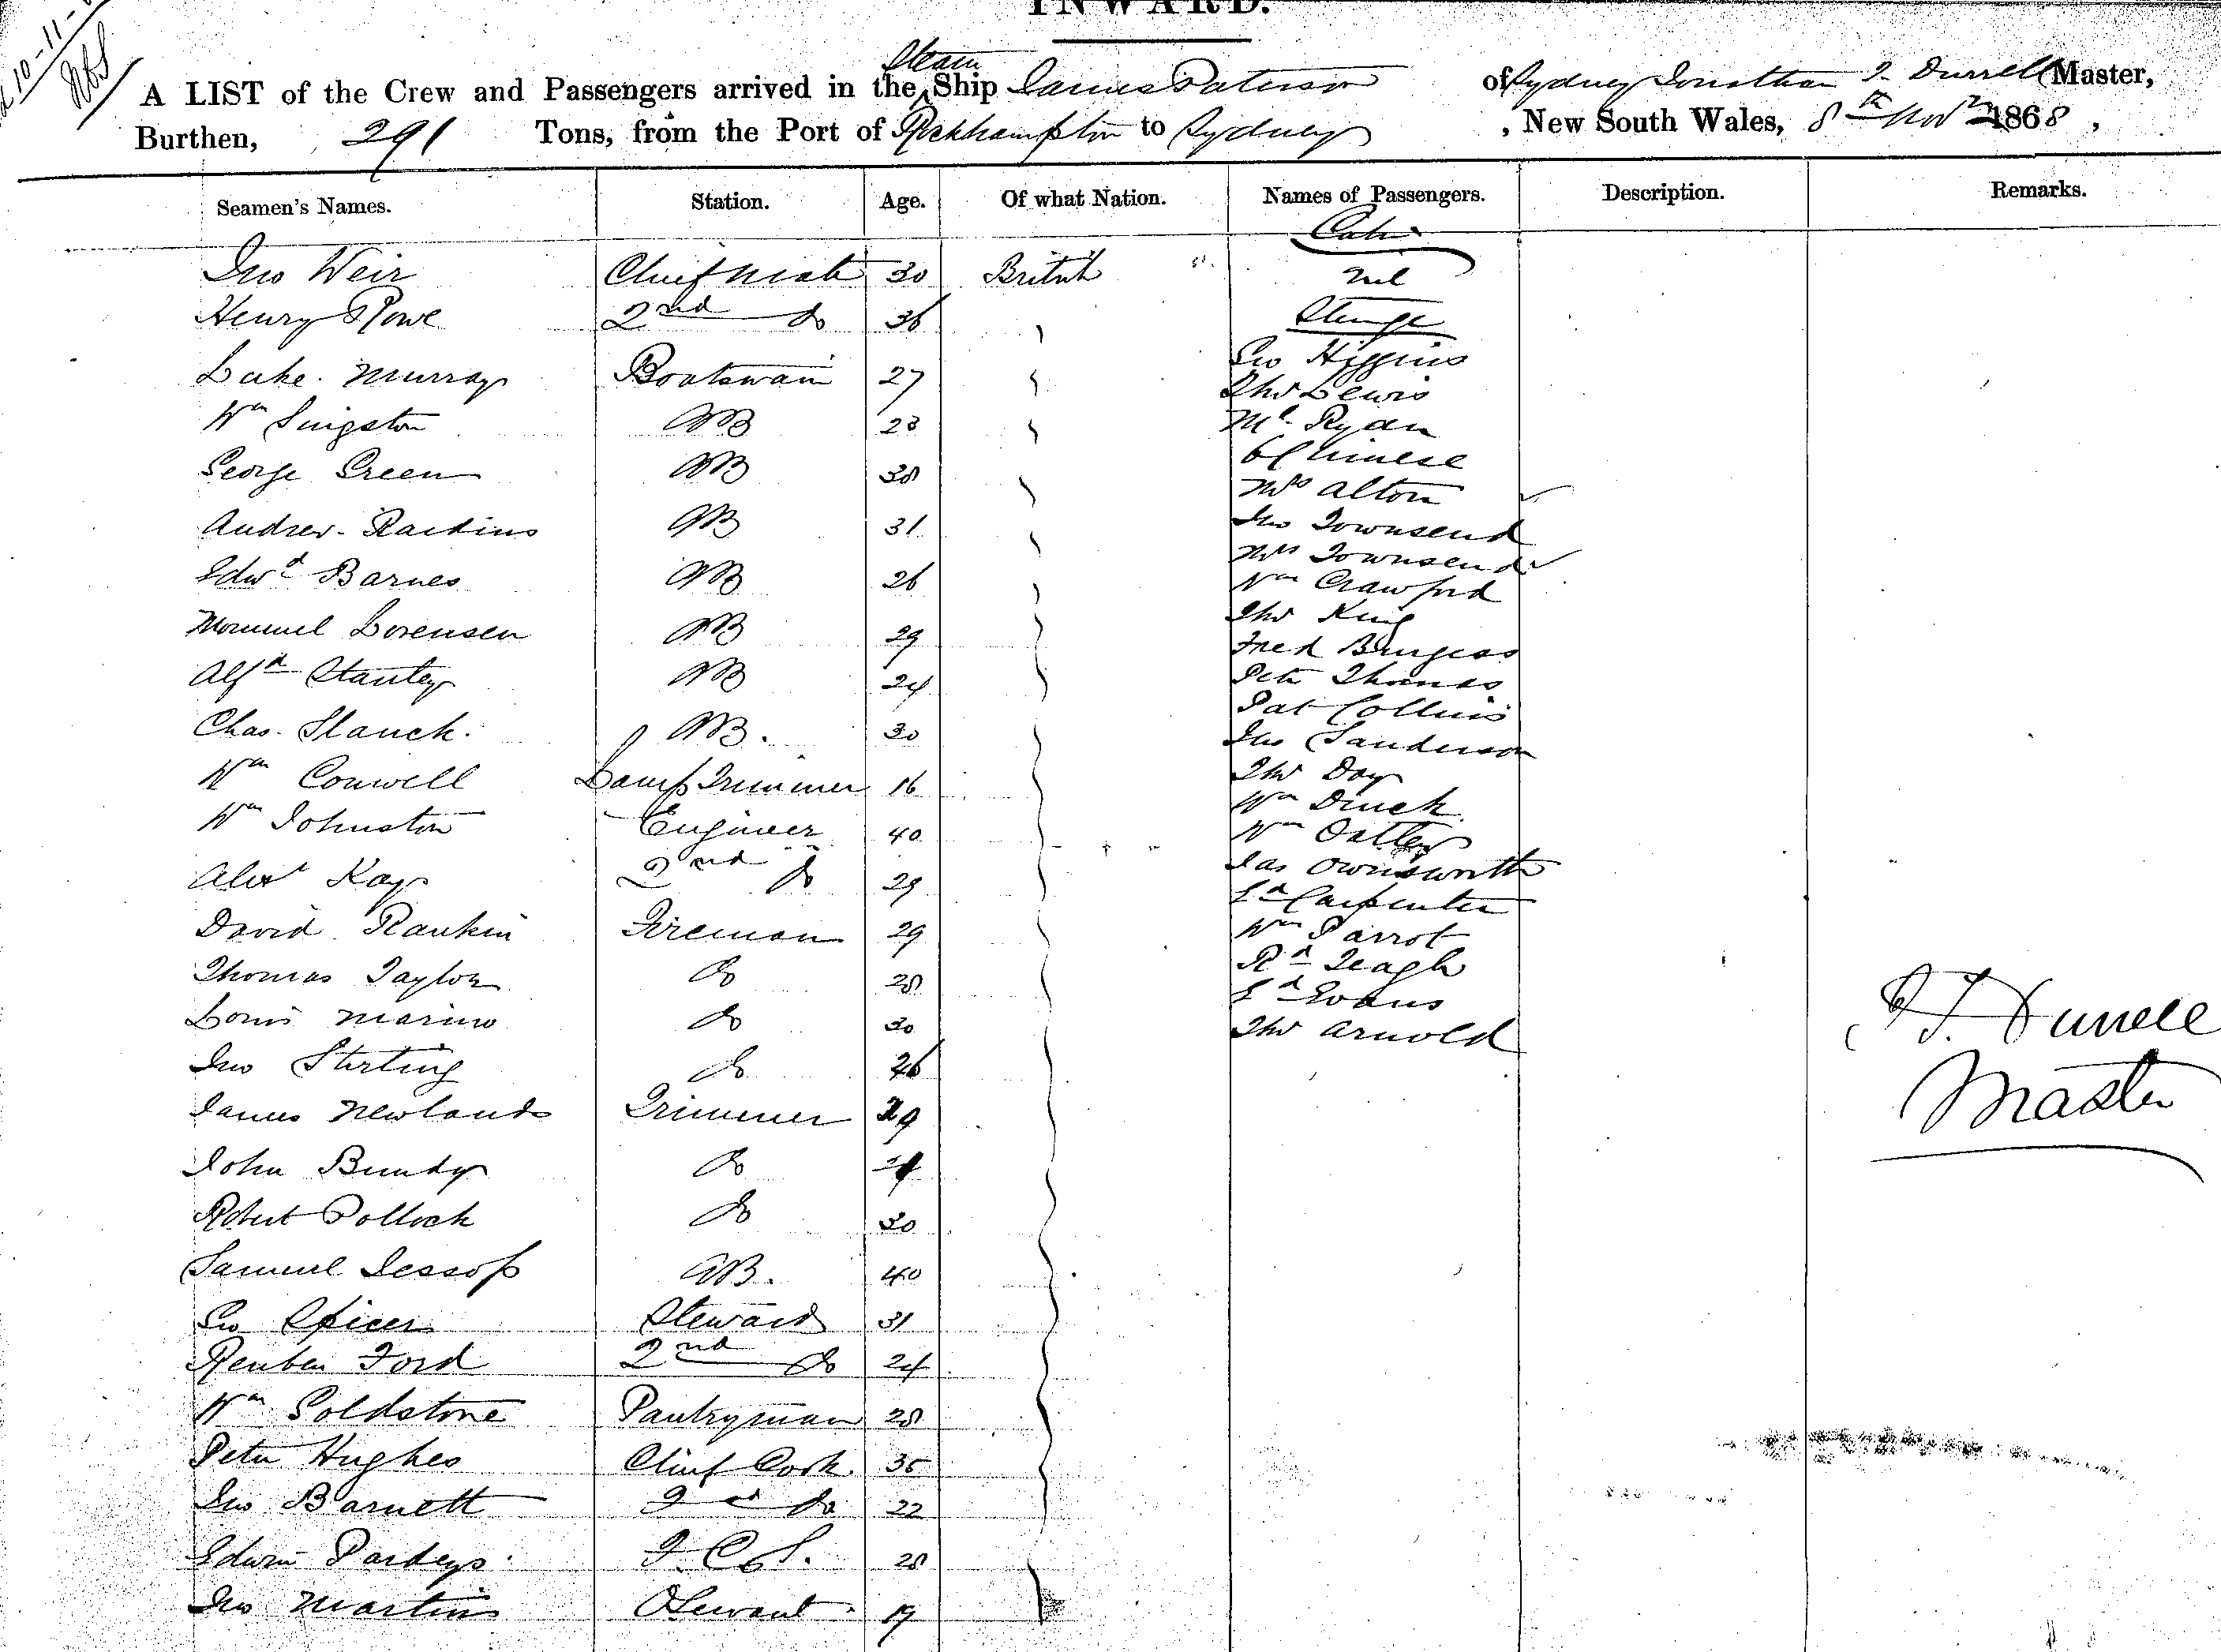 INWARD.
10-11-
A LIST of the Crew and Passengers arrived in the Steam Ship James Paterson of Sydney Jonathan T. Durrell Master,
Burthen, 291 Tons, from the Port of Rockhampton to Sydney, New South Wales, 8th Novr 1868,
Seamen's Names. Station. Age. Of what Nation. Names of Passengers. Description. Remarks.
Cabin
Jno Weir Chief Mate 30 British Nil
Henry Rowe 2nd Do 36 Steerage
Geo Higgins
Luke Murray Boatswain 27 Thos Lewis
Wm Singston AB 23 Ml Ryan
George Green AB 38 6 Chinese
Mrs Alton
Andrew AB 31 Jno Townsend
Mrs Townsend
Edwd Barnes AB 26 Wm Crawford
Lorensen AB 29 Thos King
Fred Burgess
Alfd Stanley AB 24 Peter Thomas
Pat Collins
Chas. AB. 30 Jno Sanderson
Wm Conwell Lamp Trimmer 16 Thos Day
Wm
Wm Johnston Engineer 40 Wm Oatley
Alexr Kay 2nd Do 29 Jas Ownsworth
Ed Carpenter
David Rankin Fireman 29 Wm Parrot
Thomas Taylor Do 28 Rd Teagle
Ed Evans
Louis Marino Do 30 Thos Arnold
J T. Durrell
Jno Stirling Do 26
Master
James Newlands Trimmer 29
John Bundy Do
Robert Pollock Do 30
Samuel Jessop AB. 40
Geo Spicer Steward 31
Reuben Ford 2nd Do 24
Wm Goldstone Pantryman 28
Peter Hughes Chief Cook 35
Jno Barnett 2nd Do 22
Edwin Pardey. 28
Jno Martin Servant 19